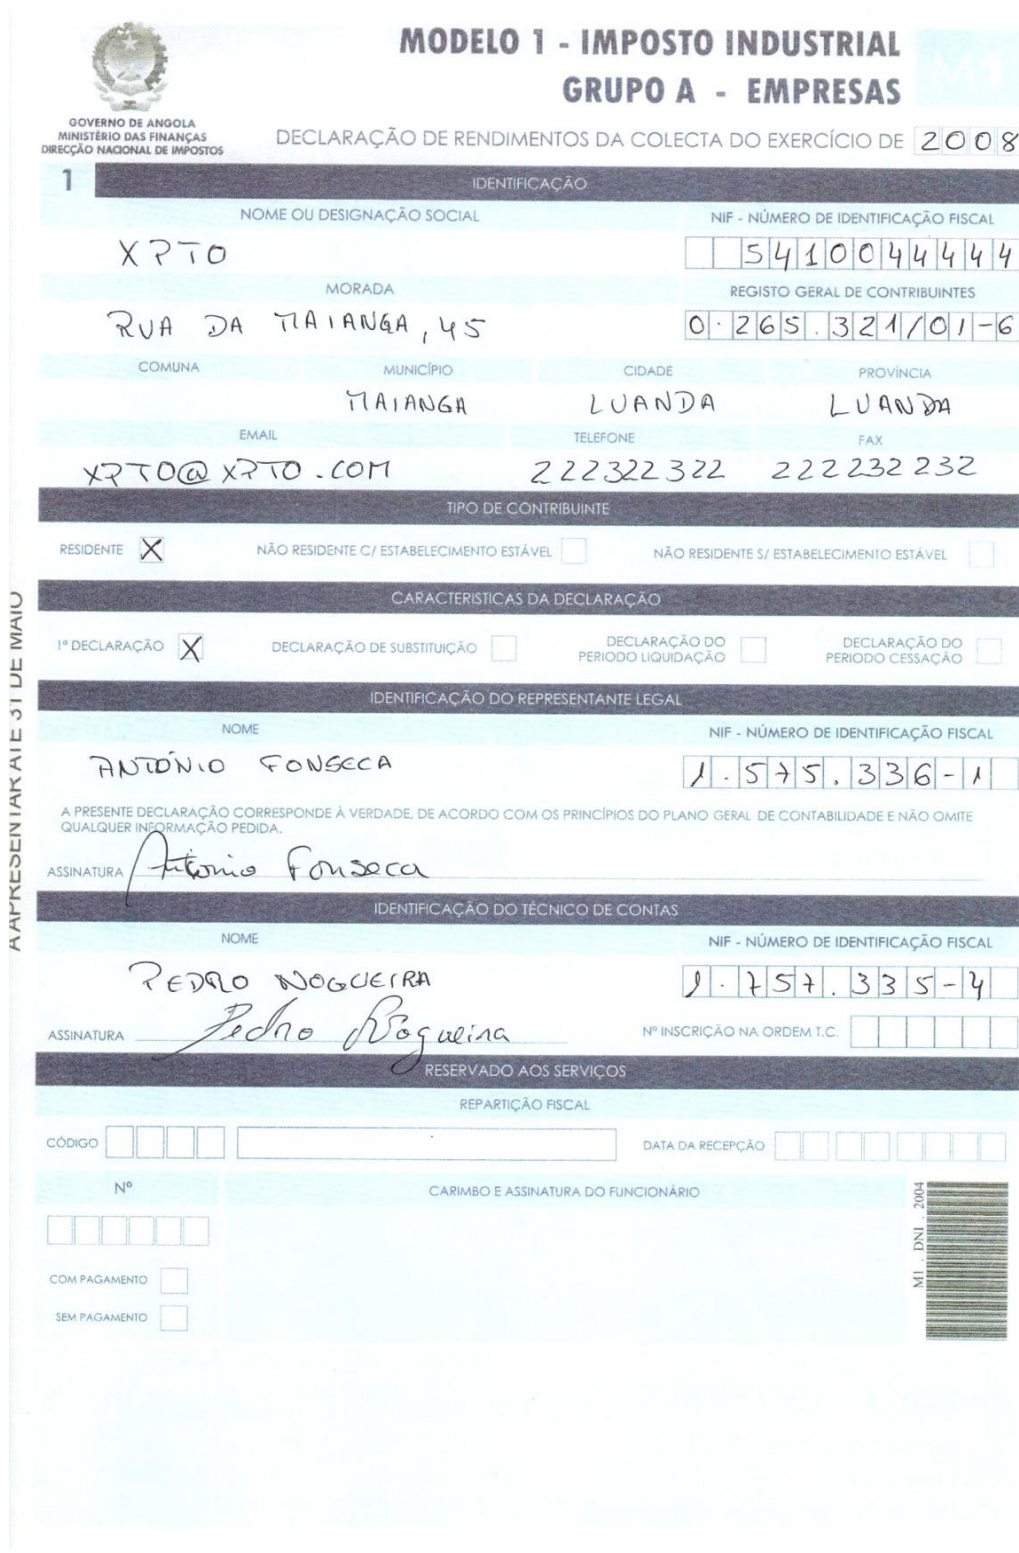 MODELO 1 - IMPOSTO INDUSTRIAL
GRUPO A - EMPRESAS
M1
GOVERNO DE ANGOLA
MINISTÉRIO DAS FINANÇAS
DIRECÇÃO NACIONAL DE IMPOSTOS
DECLARAÇÃO DE RENDIMENTOS DA COLECTA DO EXERCÍCIO DE 2008
1 IDENTIFICAÇÃO
NOME OU DESIGNAÇÃO SOCIAL NIF - NÚMERO DE IDENTIFICAÇÃO FISCAL
XPTO 5410044444
MORADA REGISTO GERAL DE CONTRIBUINTES
RUA DA MAIANGA, 45 0.265.321/01-6
COMUNA MUNICÍPIO CIDADE PROVÍNCIA
MAIANGA LUANDA LUANDA
EMAIL TELEFONE FAX
XPTO@XPTO.COM 222322322 222232232
TIPO DE CONTRIBUINTE
RESIDENTE X NÃO RESIDENTE C/ ESTABELECIMENTO ESTÁVEL NÃO RESIDENTE S/ ESTABELECIMENTO ESTÁVEL
CARACTERISTICAS DA DECLARAÇÃO
1ª DECLARAÇÃO X DECLARAÇÃO DE SUBSTITUIÇÃO DECLARAÇÃO DO PERIODO LIQUIDAÇÃO DECLARAÇÃO DO PERIODO CESSAÇÃO
IDENTIFICAÇÃO DO REPRESENTANTE LEGAL
NOME NIF - NÚMERO DE IDENTIFICAÇÃO FISCAL
ANTÓNIO FONSECA 1.575.336-1
A PRESENTE DECLARAÇÃO CORRESPONDE À VERDADE, DE ACORDO COM OS PRINCÍPIOS DO PLANO GERAL DE CONTABILIDADE E NÃO OMITE
QUALQUER INFORMAÇÃO PEDIDA.
ASSINATURA António Fonseca
IDENTIFICAÇÃO DO TÉCNICO DE CONTAS
NOME NIF - NÚMERO DE IDENTIFICAÇÃO FISCAL
PEDRO NOGUEIRA 1.757.335-4
ASSINATURA Pedro Nogueira Nº INSCRIÇÃO NA ORDEM T.C.
RESERVADO AOS SERVIÇOS
REPARTIÇÃO FISCAL
CÓDIGO DATA DA RECEPÇÃO
Nº CARIMBO E ASSINATURA DO FUNCIONÁRIO
COM PAGAMENTO
SEM PAGAMENTO
M1 . DNI . 2004
A APRESENTAR ATE 31 DE MAIO